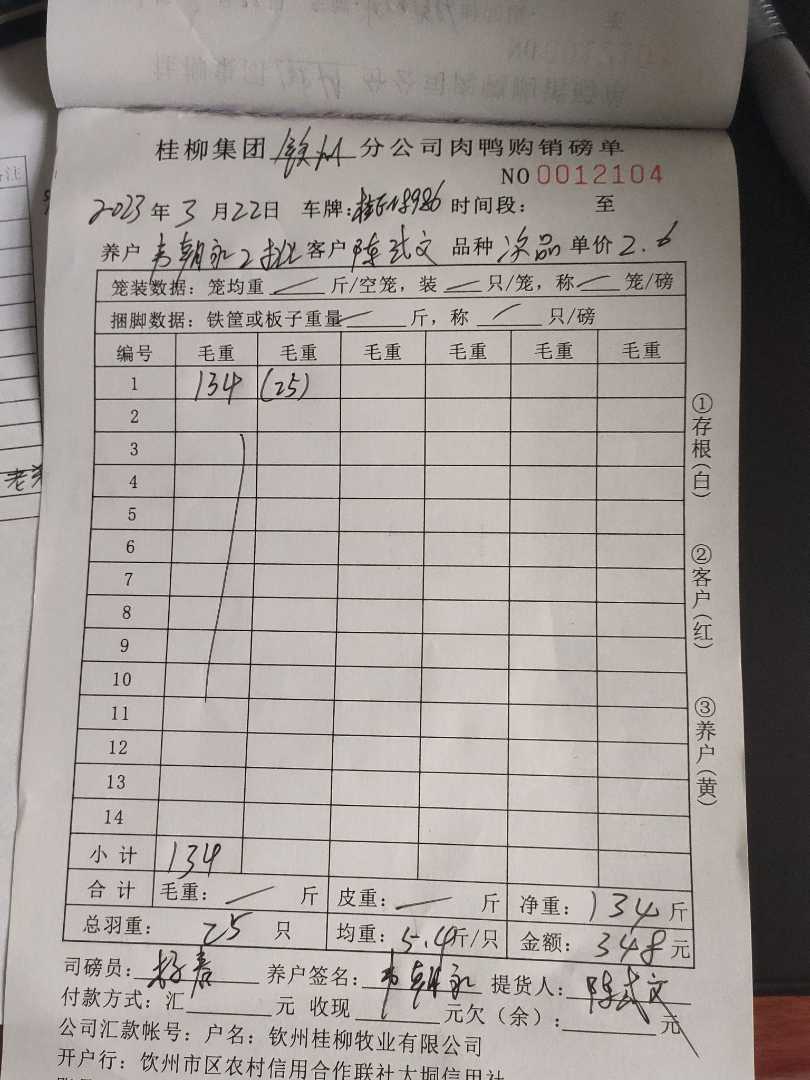 桂柳集团 钦州 分公司肉鸭购销磅单
NO 0012104
2023年3月22日 车牌: 时间段: 至
养户 韦朝永2批 客户 陈武文 品种 次品 单价 2.6
笼装数据: 笼均重 斤/空笼, 装 只/笼, 称 笼/磅
捆脚数据: 铁筐或板子重量 斤, 称 只/磅
编号 毛重 毛重 毛重 毛重 毛重 毛重
1 134 (25)
2
3
4
5
6
7
8
9
10
11
12
13
14
小计 134
合计 毛重: 斤 皮重: 斤 净重: 134 斤
总羽重: 25 只 均重: 5.4 斤/只 金额: 348 元
司磅员: 养户签名: 韦朝永 提货人: 陈武文
付款方式: 汇 元 收现 元欠(余): 元
公司汇款帐号: 户名: 钦州桂柳牧业有限公司
开户行: 钦州市区农村信用合作联社大垌信用社
①存根(白)
②客户(红)
③养户(黄)